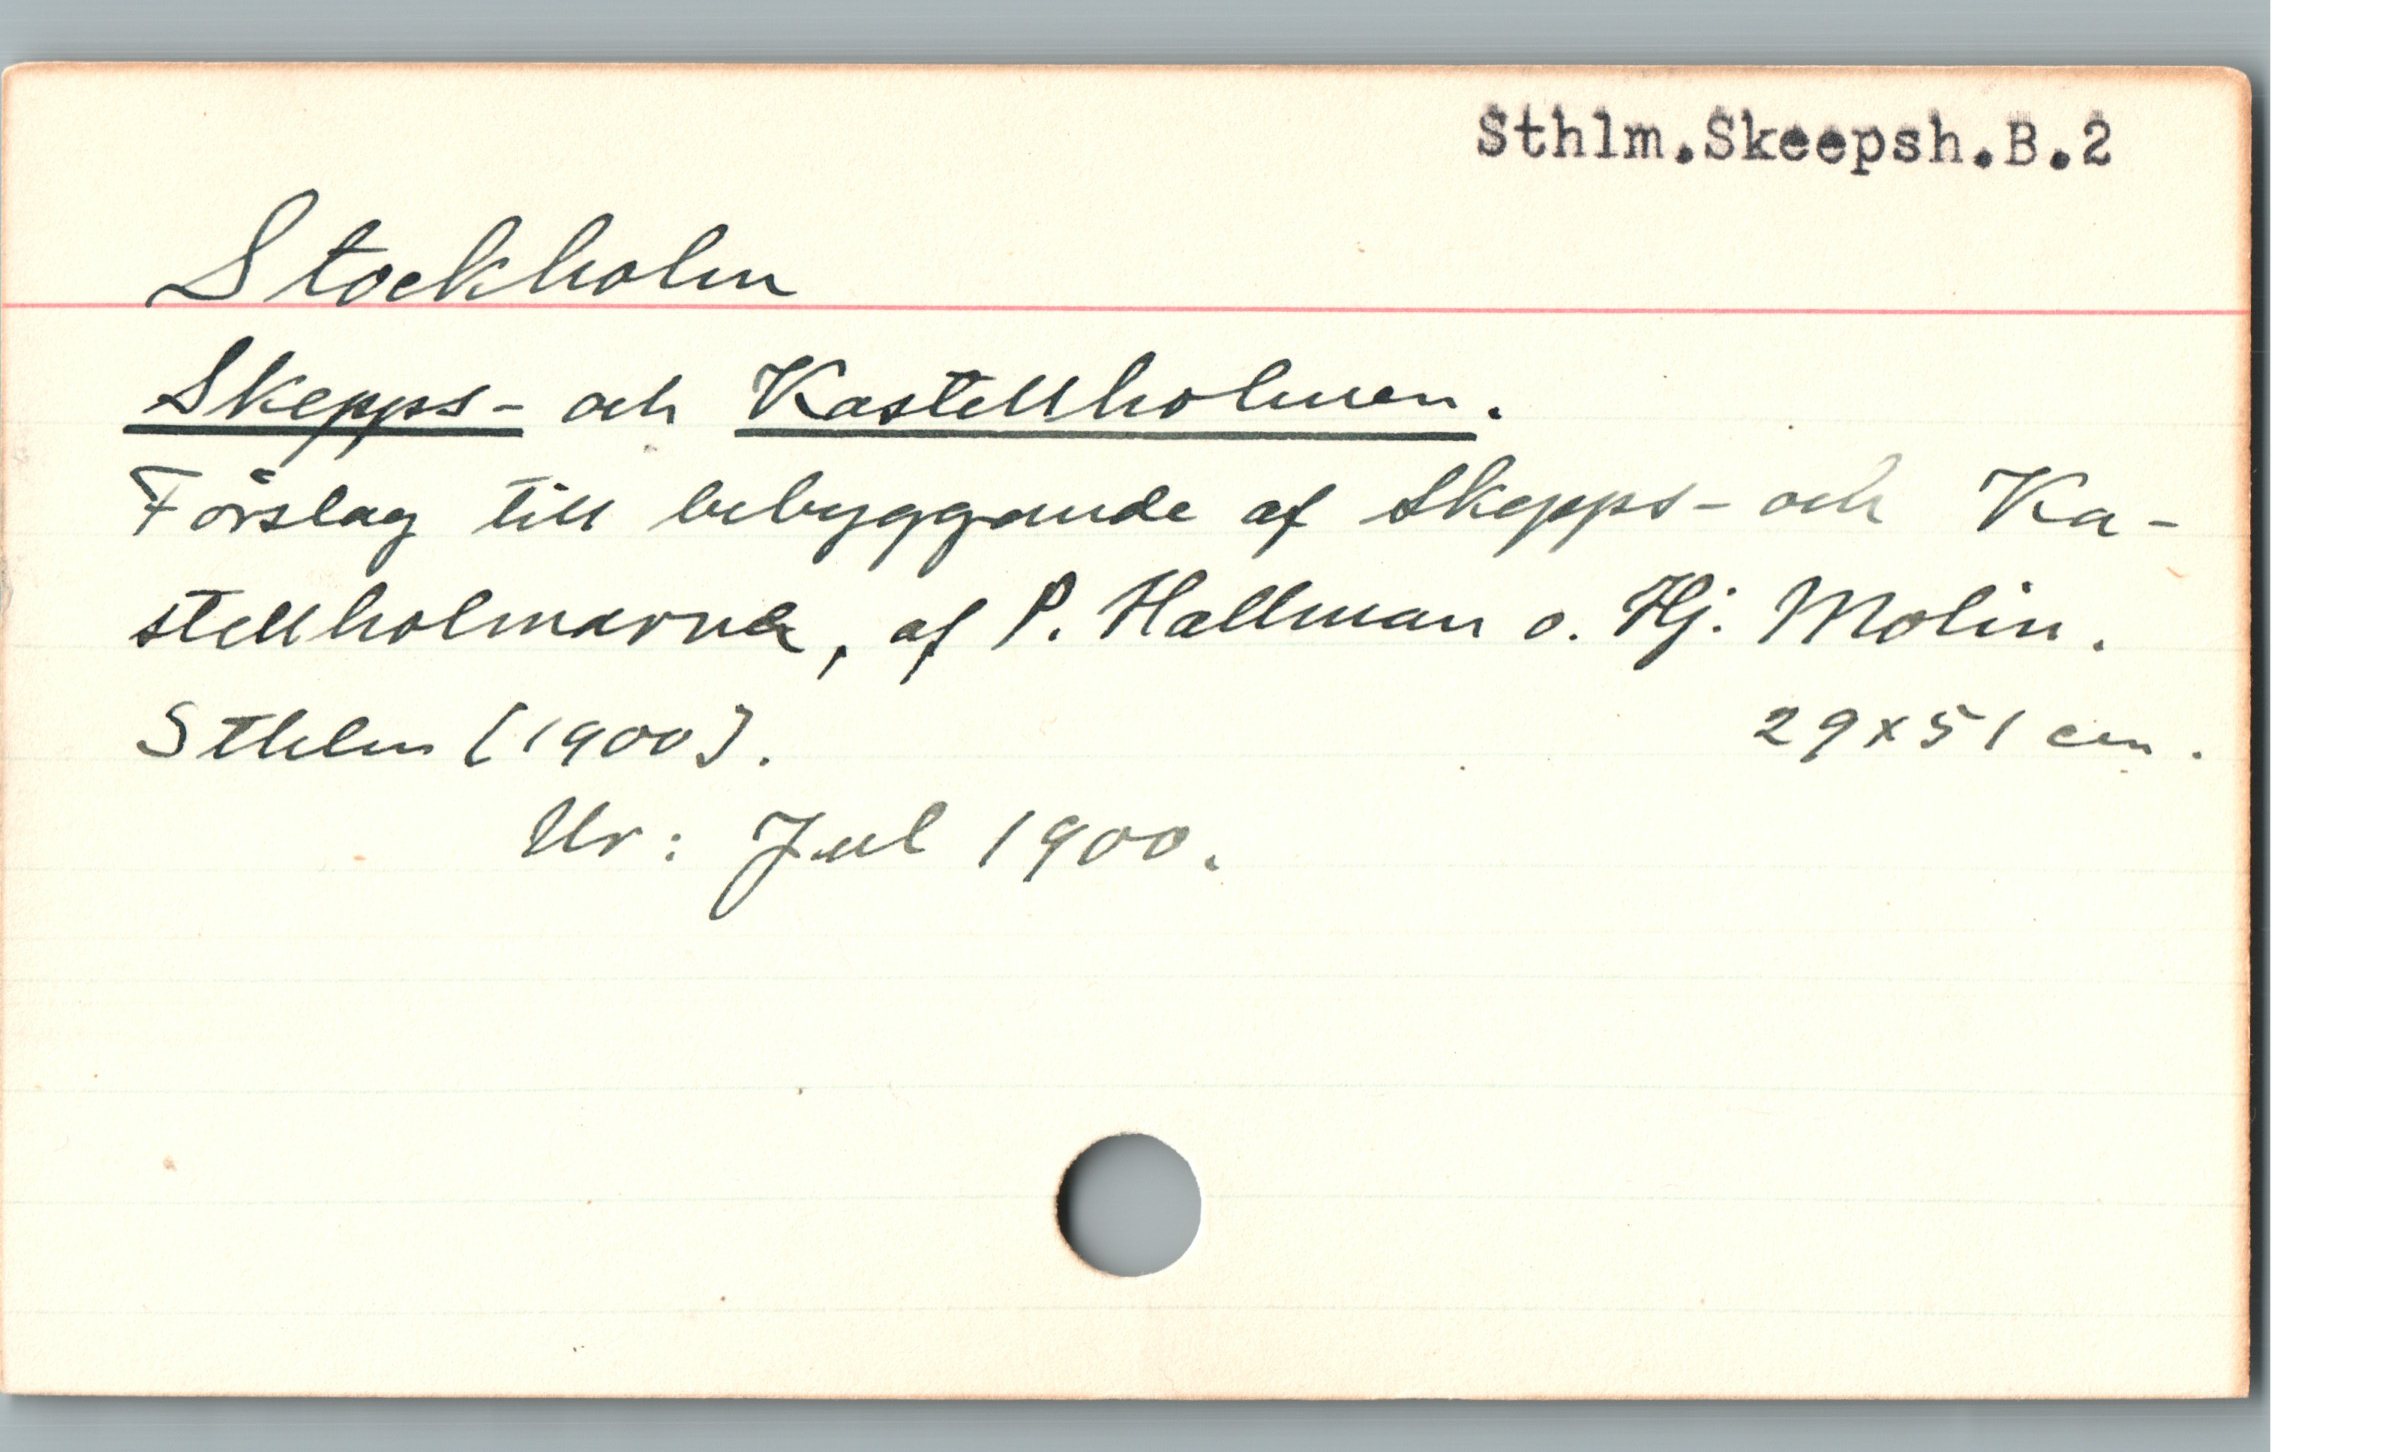 Sthlm.Skeepsh.B.2
Stockholm
Skepps- och Kastellholmen.
Förslag till bebyggande af Skepps- och Ka-
stellholmarna, af P. Hallman o. Hj. Molin.
Sthlm [1900]. 29x51 cm.
Ur: Jul 1900.